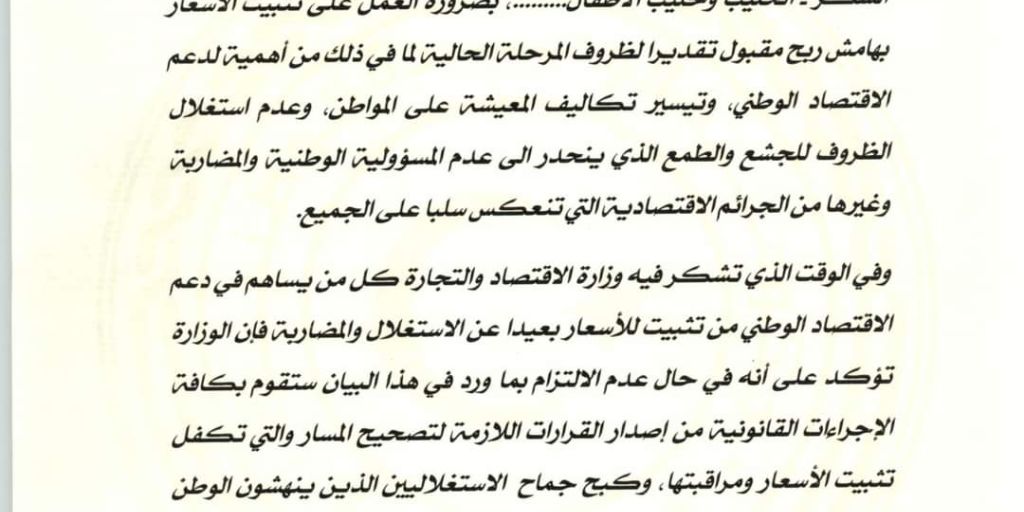 السكر - الحليب وحليب الأطفال.........، بضرورة العمل على تثبيت الأسعار
بهامش ربح مقبول تقديرا لظروف المرحلة الحالية لما في ذلك من أهمية لدعم
الاقتصاد الوطني، وتيسير تكاليف المعيشة على المواطن، وعدم استغلال
الظروف للجشع والطمع الذي ينحدر الى عدم المسؤولية الوطنية والمضاربة
وغيرها من الجرائم الاقتصادية التي تنعكس سلبا على الجميع.
وفي الوقت الذي تشكر فيه وزارة الاقتصاد والتجارة كل من يساهم في دعم
الاقتصاد الوطني من تثبيت للأسعار بعيدا عن الاستغلال والمضاربة فإن الوزارة
تؤكد على أنه في حال عدم الالتزام بما ورد في هذا البيان ستقوم بكافة
الإجراءات القانونية من إصدار القرارات اللازمة لتصحيح المسار والتي تكفل
تثبيت الأسعار ومراقبتها، وكبح جماح الاستغلاليين الذين ينهشون الوطن